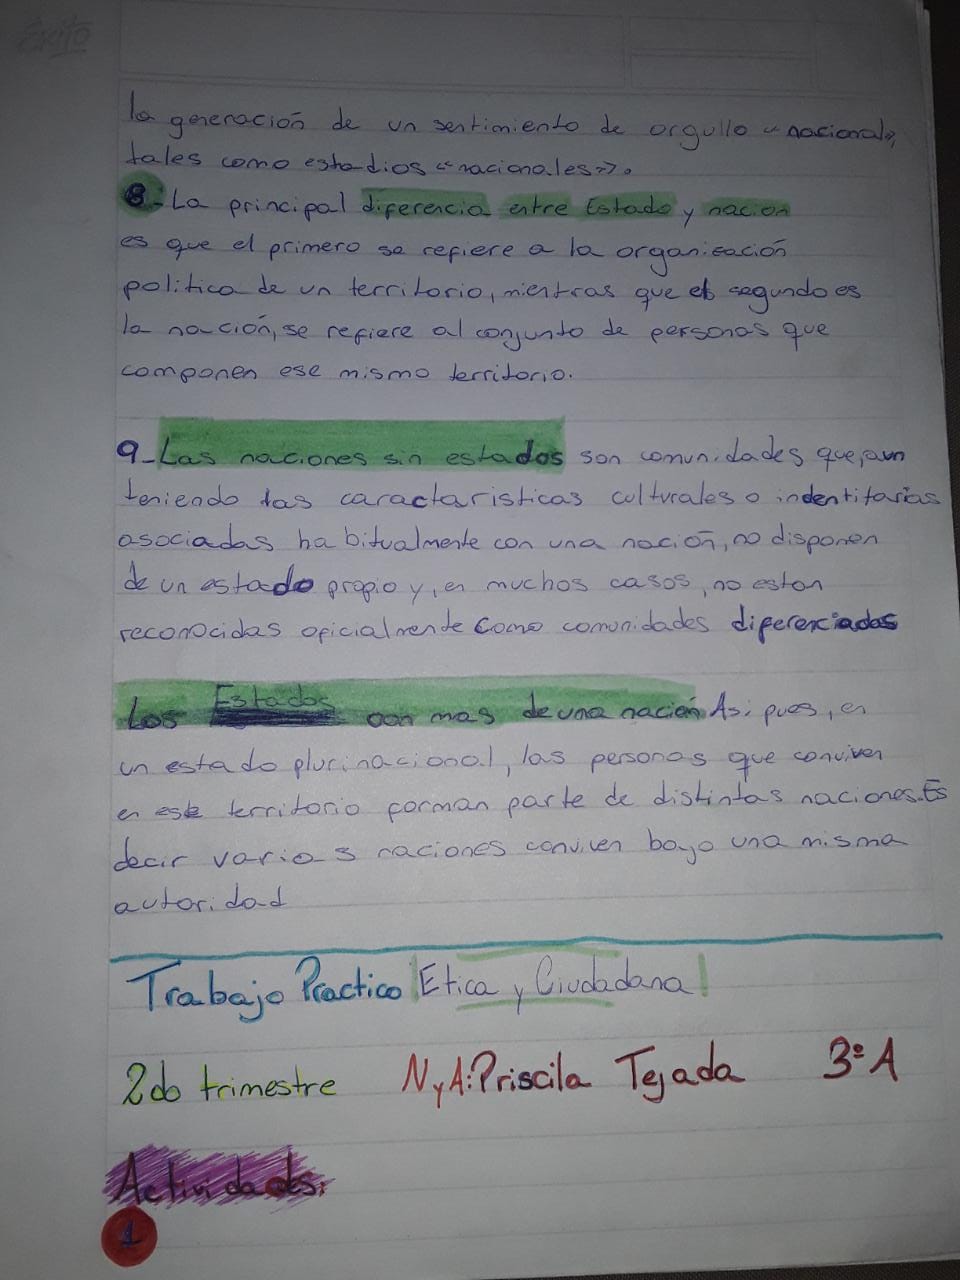 Éxito
la generación de un sentimiento de orgullo «nacional»,
tales como estadios «nacionales».
8- La principal diferencia entre Estado y nación
es que el primero se refiere a la organización
política de un territorio, mientras que el segundo es
la nación, se refiere al conjunto de personas que
componen ese mismo territorio.
9- Las naciones sin estados son comunidades que, aun
teniendo las caractaristicas culturales o indentitarias
asociadas habitualmente con una nación, no disponen
de un estado propio y, en muchos casos, no estan
reconocidas oficialmente como comunidades diferenciadas
Los Estados con mas de una nación Asi pues, en
un estado plurinacional, las personas que conviven
en este territorio forman parte de distintas naciones. Es
decir varias naciones conviven bajo una misma
autoridad
Trabajo Practico Etica y Ciudadana
2do trimestre NyA: Priscila Tejada 3º A
Actividades:
1